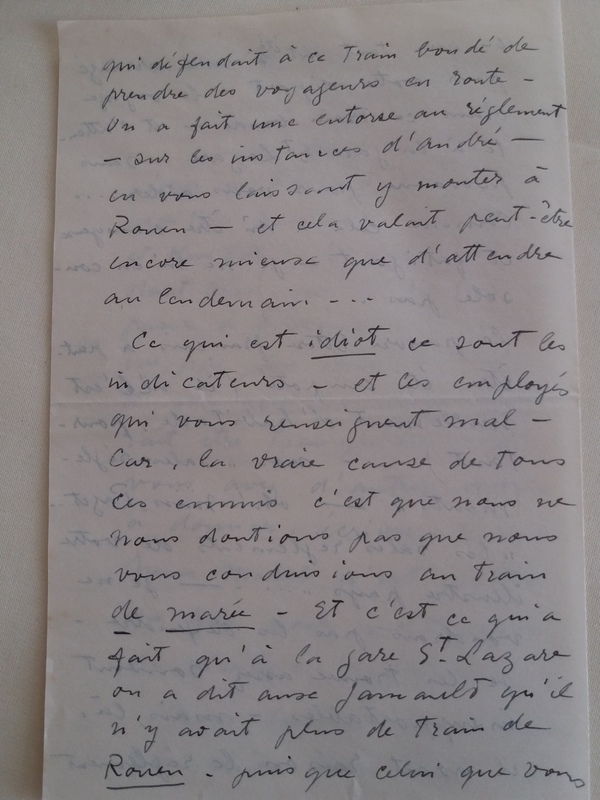 qui défendait à ce Train bondé de
prendre des voyageurs en route –
On a fait une entorse au réglement
– sur les instances d'andré –
en vous laissant y monter à
Rouen – et cela valait peut-être
encore mieux que d'attendre
au lendemain - - -
Ce qui est idiot ce sont les
indicateurs – et les employés
qui vous renseignent mal –
Car, la vraie cause de tous
ces ennuis c'est que nous ne
nous doutions pas que nous
vous conduisions au train
de marée – Et c'est ce qui a
fait qu'à la gare St. Lazare
on a dit aux qu'il
n'y avait plus de train de
Rouen - puisque celui que vous